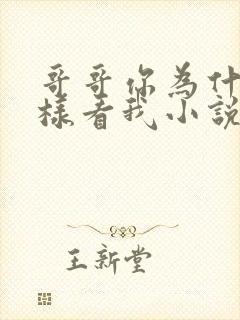 哥哥你為什
樣看我小說
王新堂